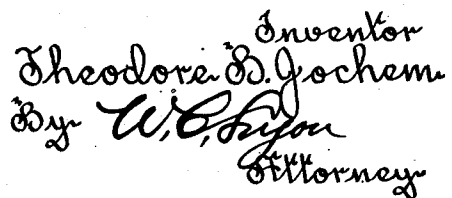 Inventor
Theodore B. Jochem
By W. C. Lyon
Attorney